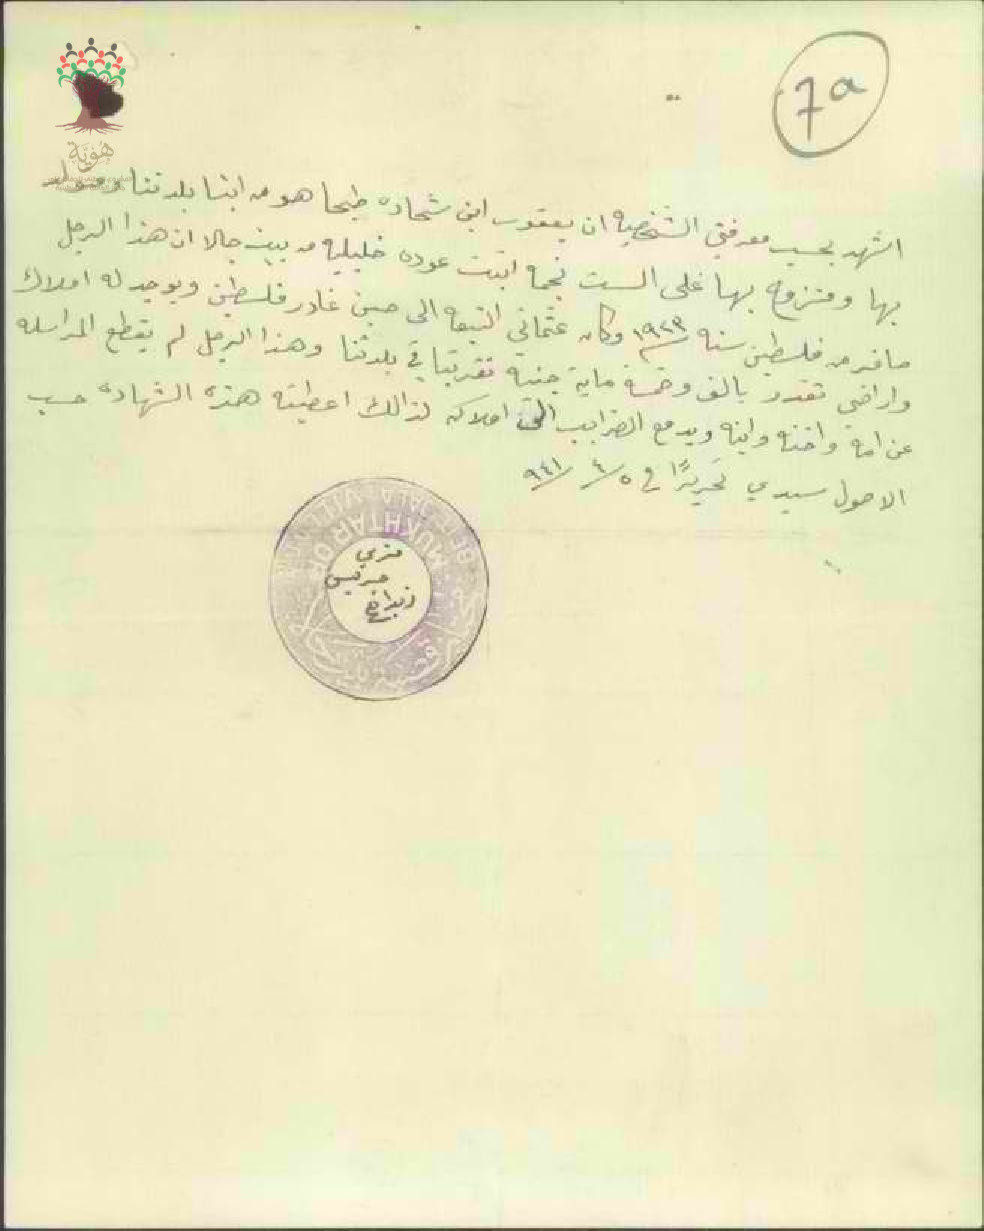 7a
هوية
اشهد بحسب معرفتي الشخصيه ان يعقوب ابن شحاده طيحا هو من ابنا بلدتنا ومولد
بها ومتزوج بها على الست نجمه ابنت عوده خليليه من بيت جالا ان هذا الرجل
سافر من فلسطين سنه ١٩٢٣ وكان عثماني التبعه الى حين غادر فلسطين ويوجد له املاك
واراضي تقدر بالف وخمسة ماية جنيه تقريبا في بلدتنا وهذا الرجل لم يقطع المراسله
عن امه واخته وابنه ويدفع الضرايب الى املاكه لذالك اعطيته هذه الشهاده حسب
الاصول سيدي تحريرًا في ٥/٤/٩٤١
MUKHTAR OF
BEIT JALA VILLAGE
جريس